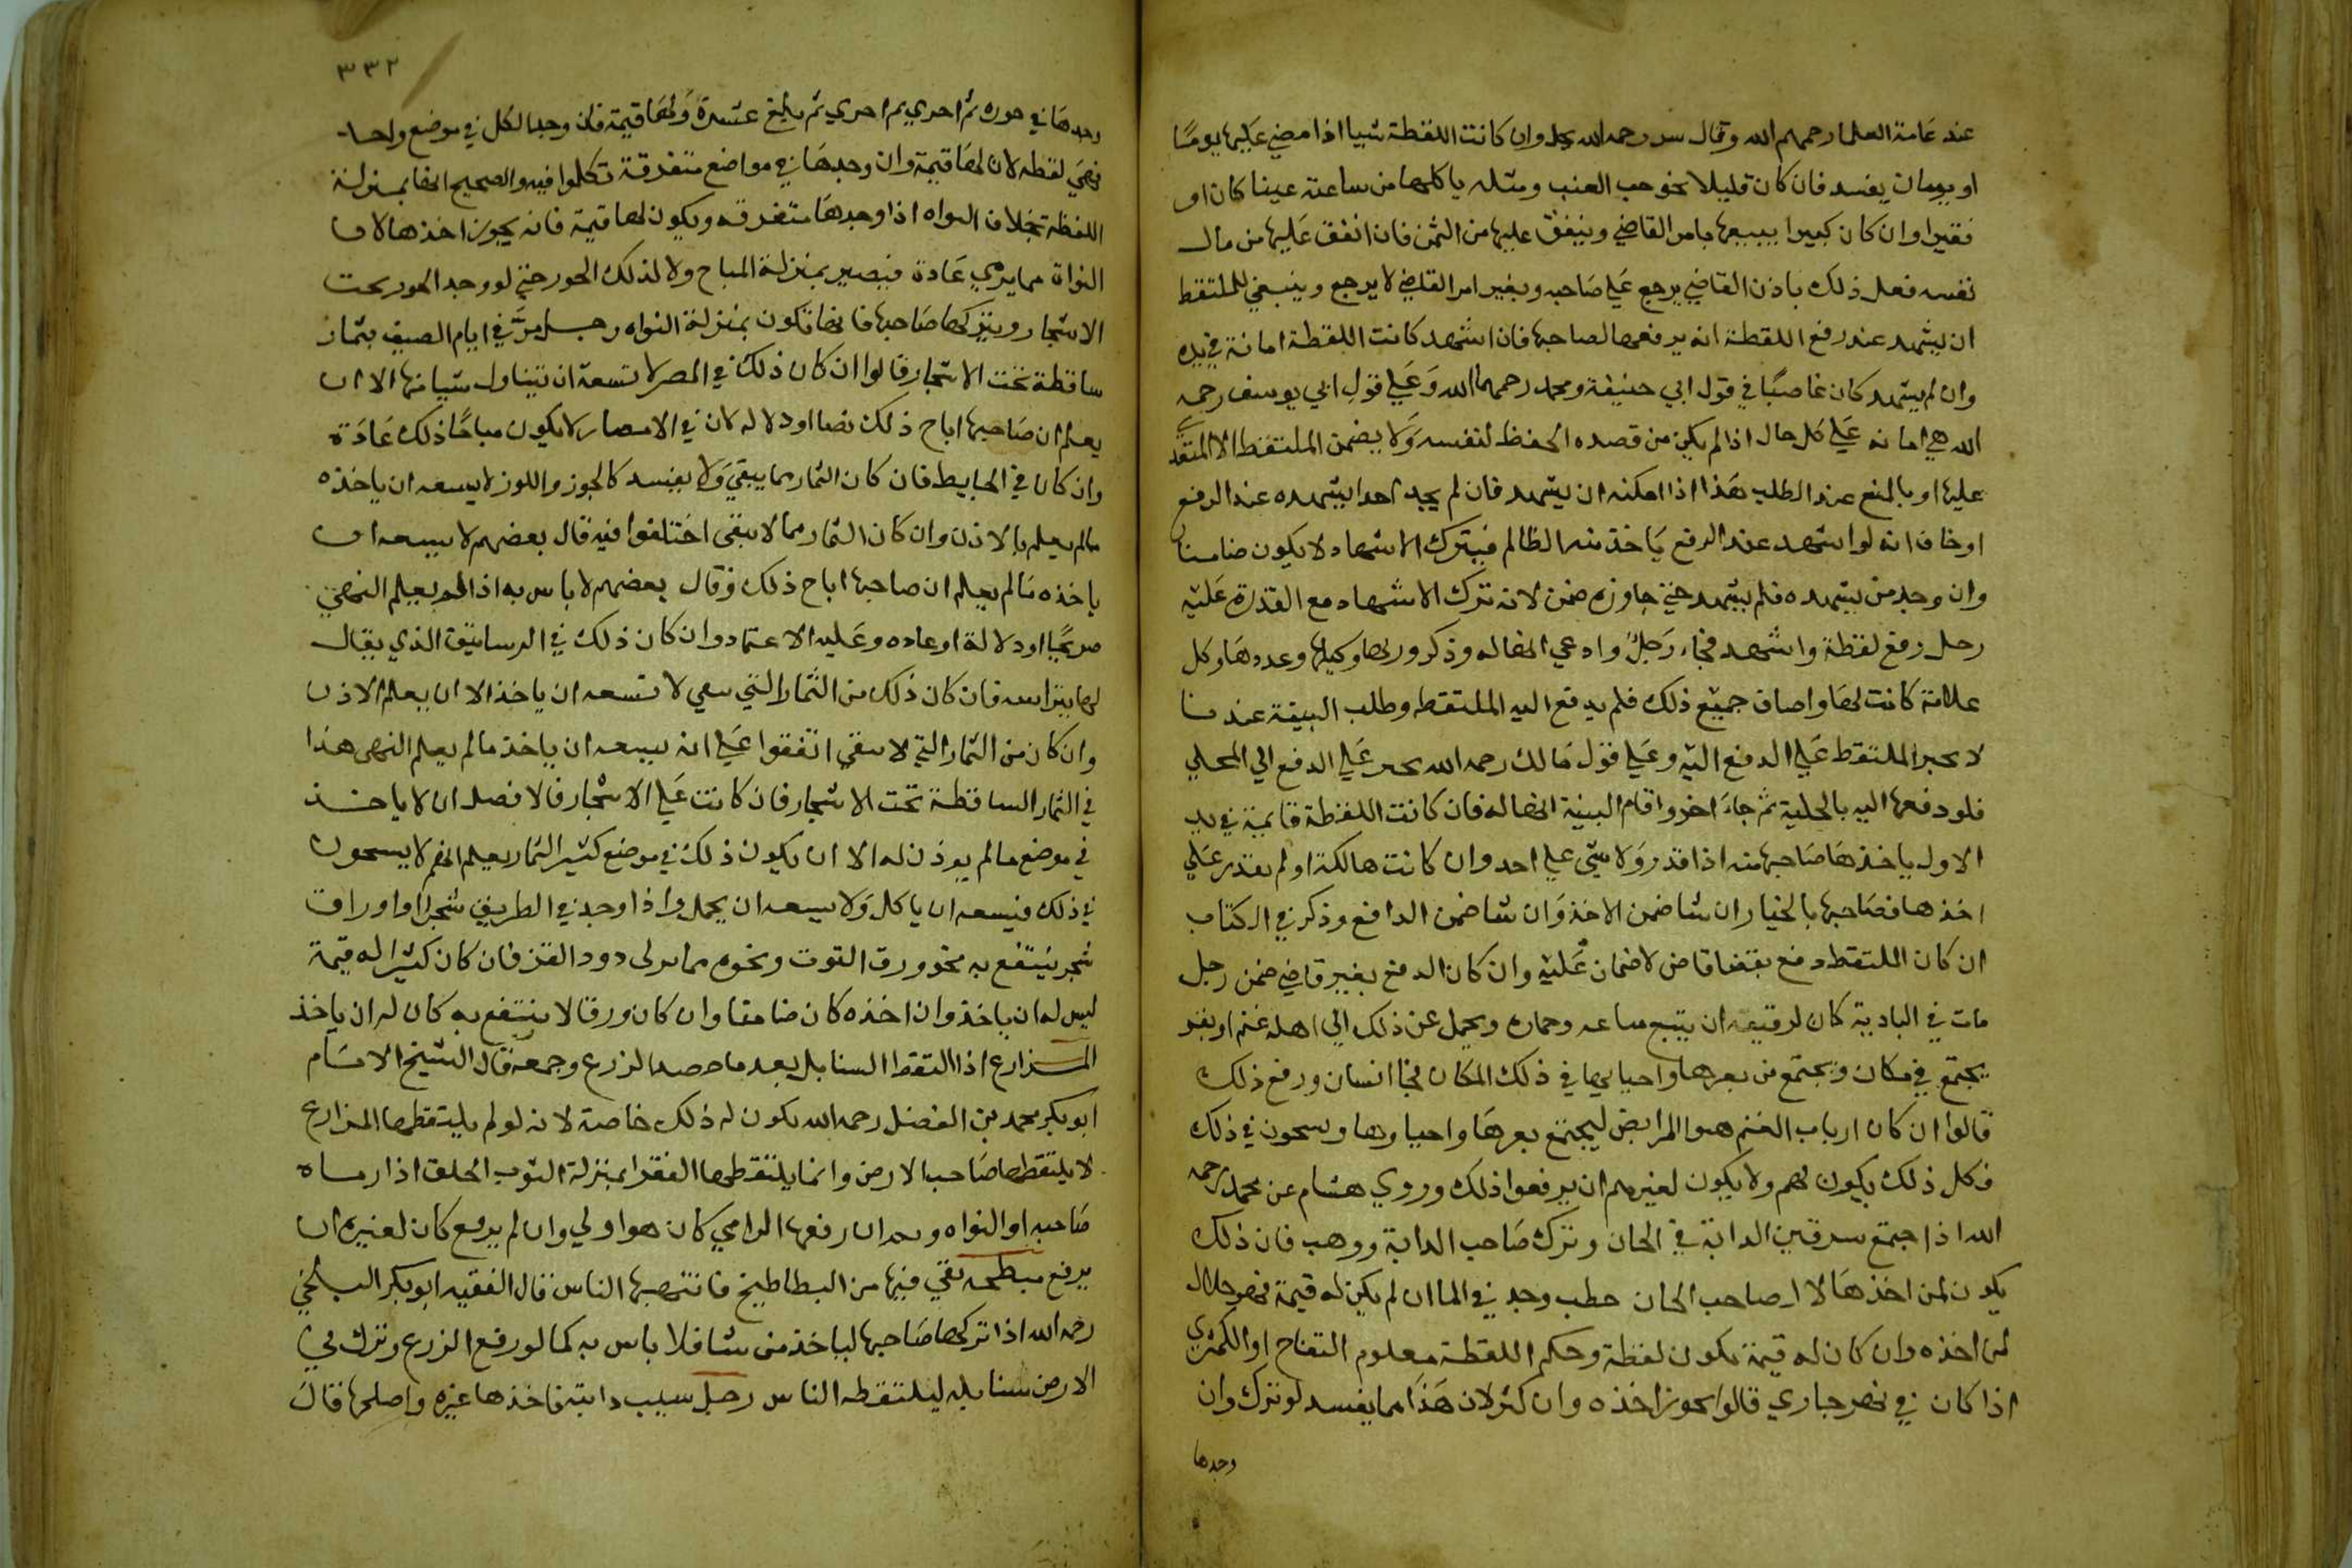 عند عامة العلما رحمهم الله وقال رحمه الله وان كانت اللقطة شيا اذا مضي عليها يوما
او يومان يفسد فان كان قليلا نحو حب العنب ومثله ياكلها من ساعته غنيا كان او
فقيرا وان كان كبيرا يبيعها بامر القاضي وينفق عليها من الثمن فان انفق عليها من مال
نفسه فعل ذلك باذن القاضي يرجع علي صاحبه وبغير امر القاضي لا يرجع وينبغي للملتقط
ان يشهد عند رفع اللقطة انه يرفعها لصاحبها فان اشهد كانت اللقطة امانة في يده
وان لم يشهد كان غاصبا في قول ابي حنيفة ومحمد رحمهما الله وعلي قول ابي يوسف رحمه
الله هي امانه علي كل حال اذا لم يكن من قصده الحفظ لنفسه ولا يضمن الملتقط الا
عليها او بالمنع عند الطلب هذا اذا امكنه ان يشهد فان لم يجد احدا يشهده عند الرفع
او خاف انه لو اشهد عند الرفع ياخذ منه الظالم فيترك الاشهاد لا يكون ضامنا
وان وجد من يشهده فلم يشهد حتي جاوزه ضمن لانه ترك الاشهاد مع القدرة عليه
رجل رفع لقطة واشهد فجاء رجل وادعي انها له وذكر وزنها وكيلها وعددها وكل
علامة كانت لها واصاف جميع ذلك فلم يدفع اليه الملتقط وطلب البينة عندنا
لا يجبر الملتقط علي الدفع اليه وعلي قول مالك رحمه الله يجبر علي الدفع الي المحلي
فلو دفعها اليه بالحلية ثم جاء اخر واقام البينة انها له فان كانت اللقطة قايمة في يد
الاول ياخذها صاحبها منه اذا قدر ولا شي علي احد وان كانت هالكة او لم يقدر علي
اخذها فصاحبها بالخيار ان شا ضمن الاخذ وان شا ضمن الدافع وذكر في الكتاب
ان كان الملتقط دفع بقضا قاض لا ضمان عليه وان كان الدفع بغير قاضي ضمن رجل
مات في البادية كان لرفيقه ان يبيع متاعه وحماره ويحمل ثمن ذلك الي اهله غنم او بقر
يجتمع في مكان ويجتمع من بعرها في ذلك المكان فجا انسان ورفع ذلك
قالوا ان كان ارباب الغنم المرابض ليجتمع بعرها في ذلك
فكل ذلك يكون لهم ولا يكون لغيرهم ان يرفعوا ذلك وروي هشام عن محمد رحمه
الله اذا اجتمع سرقين الدابة في الخان وترك صاحب الدابة ووهب فان ذلك
يكون لمن اخذها لا لصاحب الخان حطب وجد في الما ان لم يكن له قيمة فهو حلال
لمن اخذه وان كان له قيمة يكون لقطة وحكم اللقطة معلوم التفاح او الكمثري
اذا كان في نهر جاري قالوا يجوز اخذه وان كثر لان هذا مما يفسد لو ترك وان
وجدها
٣٣٢
وجدها في جوزه ثم اخري ثم اخري ثم بلغ عشرة ولها قيمة فان وجد الكل في موضع واحد
فهي لقطه لان لها قيمة وان وجدها في مواضع متفرقة تكلموا فيه والصحيح انها بمنزلة
اللقطة بخلاف النواه اذا وجدها متفرقه ويكون لها قيمة فانه يجوز اخذها لان
النواة مما يرمي عادة فيصير بمنزلة المباح ولا لذلك الجوز حتي لو وجد الجوز تحت
الاشجار ويتركها صاحبها فانها تكون بمنزلة النواه رجل مر في ايام الصيف بثمار
ساقطة تحت الاشجار قالوا ان كان ذلك في المصر لا تسعه ان يتناول شيا منها الا ان
يعلم ان صاحبها اباح ذلك نصا او دلاله لان في الامصار لا يكون مباحا ذلك عادة
وان كان في الحايط فان كان الثمار مما يبقي ولا يفسد كالجوز واللوز لا يسعه ان ياخذه
مالم يعلم بالاذن وان كان الثمار مما لا يبقي اختلفوا فيه قال بعضهم لا يسعه ان
ياخذه مالم يعلم ان صاحبها اباح ذلك وقال بعضهم لا باس به اذا لم يعلم النهي
صريحا او دلالة او عاده وعليه الاعتماد وان كان ذلك في الرساتيق الذي يقال
لها فان كان ذلك من الثمار التي تبقي لا تسعه ان ياخذ الا ان يعلم الاذن
وان كان من الثمار التي لا تبقي اتفقوا علي انه يسعه ان ياخذ مالم يعلم النهي هذا
في الثمار الساقطة تحت الاشجار فان كانت علي الاشجار فالافضل ان لا ياخذ
في موضع مالم يوذن له الا ان يكون ذلك في موضع كثير الثمار يعلم انهم لا يشحون
في ذلك فيسعه ان ياكل ولا يسعه ان يحمل واذا وجد في الطريق شجرا او اوراق
شجر ينتفع به نحو ورق التوت ونحوه دود القز فان كان كثيرا له قيمة
ليس له ان ياخذ وان اخذه كان ضامنا وان كان ورقا لا ينتفع به كان له ان ياخذ
المزارع اذا التقط السنابل بعد ما حصد الزرع وجمعه قال الشيخ الامام
ابو بكر محمد بن الفضل رحمه الله يكون له ذلك خاصة لانه لو لم يلتقطها المزارع
لا يلتقطها صاحب الارض وانما يلتقطها الفقرا بمنزلة الثوب الخلق اذا رماه
صاحبه او النواه ان رفعها الرامي كان هو اولي وان لم يرفع كان لغيره ان
يرفع مبطخه بقي فيها من البطاطيخ فانتهبها الناس قال الفقيه ابو بكر البلخي
رحمه الله اذا تركها صاحبها لياخذ من شا فلا باس به كما لو رفع الزرع وترك في
الارض سنابله ليلتقطه الناس رجل سيب دابته فاخذها غيره واصلحها قال